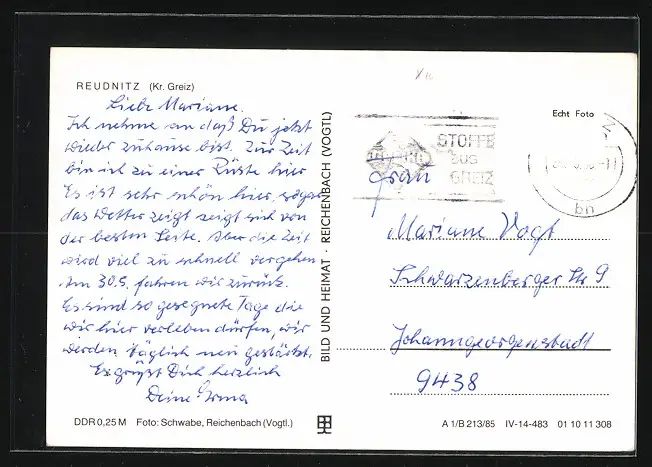 REUDNITZ (Kr. Greiz)
Liebe Mariane.
Ich nehme an daß Du jetzt
wieder zuhause bist. Zur Zeit
bin ich zu einer Rüste hier
Es ist sehr schön hier, sogar
das Wetter zeigt zeigt sich von
der besten Seite. Aber die Zeit
wird viel zu schnell vergehen
Am 30.5. fahren wir zurück.
Es sind so gesegnete Tage die
wir hier verleben dürfen, wir
werden täglich neu gestärkt.
Es grüßt Dich herzlich
Deine Erma
DDR 0,25 M Foto: Schwabe, Reichenbach (Vogtl.)
BILD UND HEIMAT · REICHENBACH (VOGTL)
Echt Foto
STOFFE
aus
GREIZ
bn
Frau
Mariane Vogt
Schwarzenberger Str 9
Johanngeorgenstadt
9438
A 1/B 213/85 IV-14-483 01 10 11 308